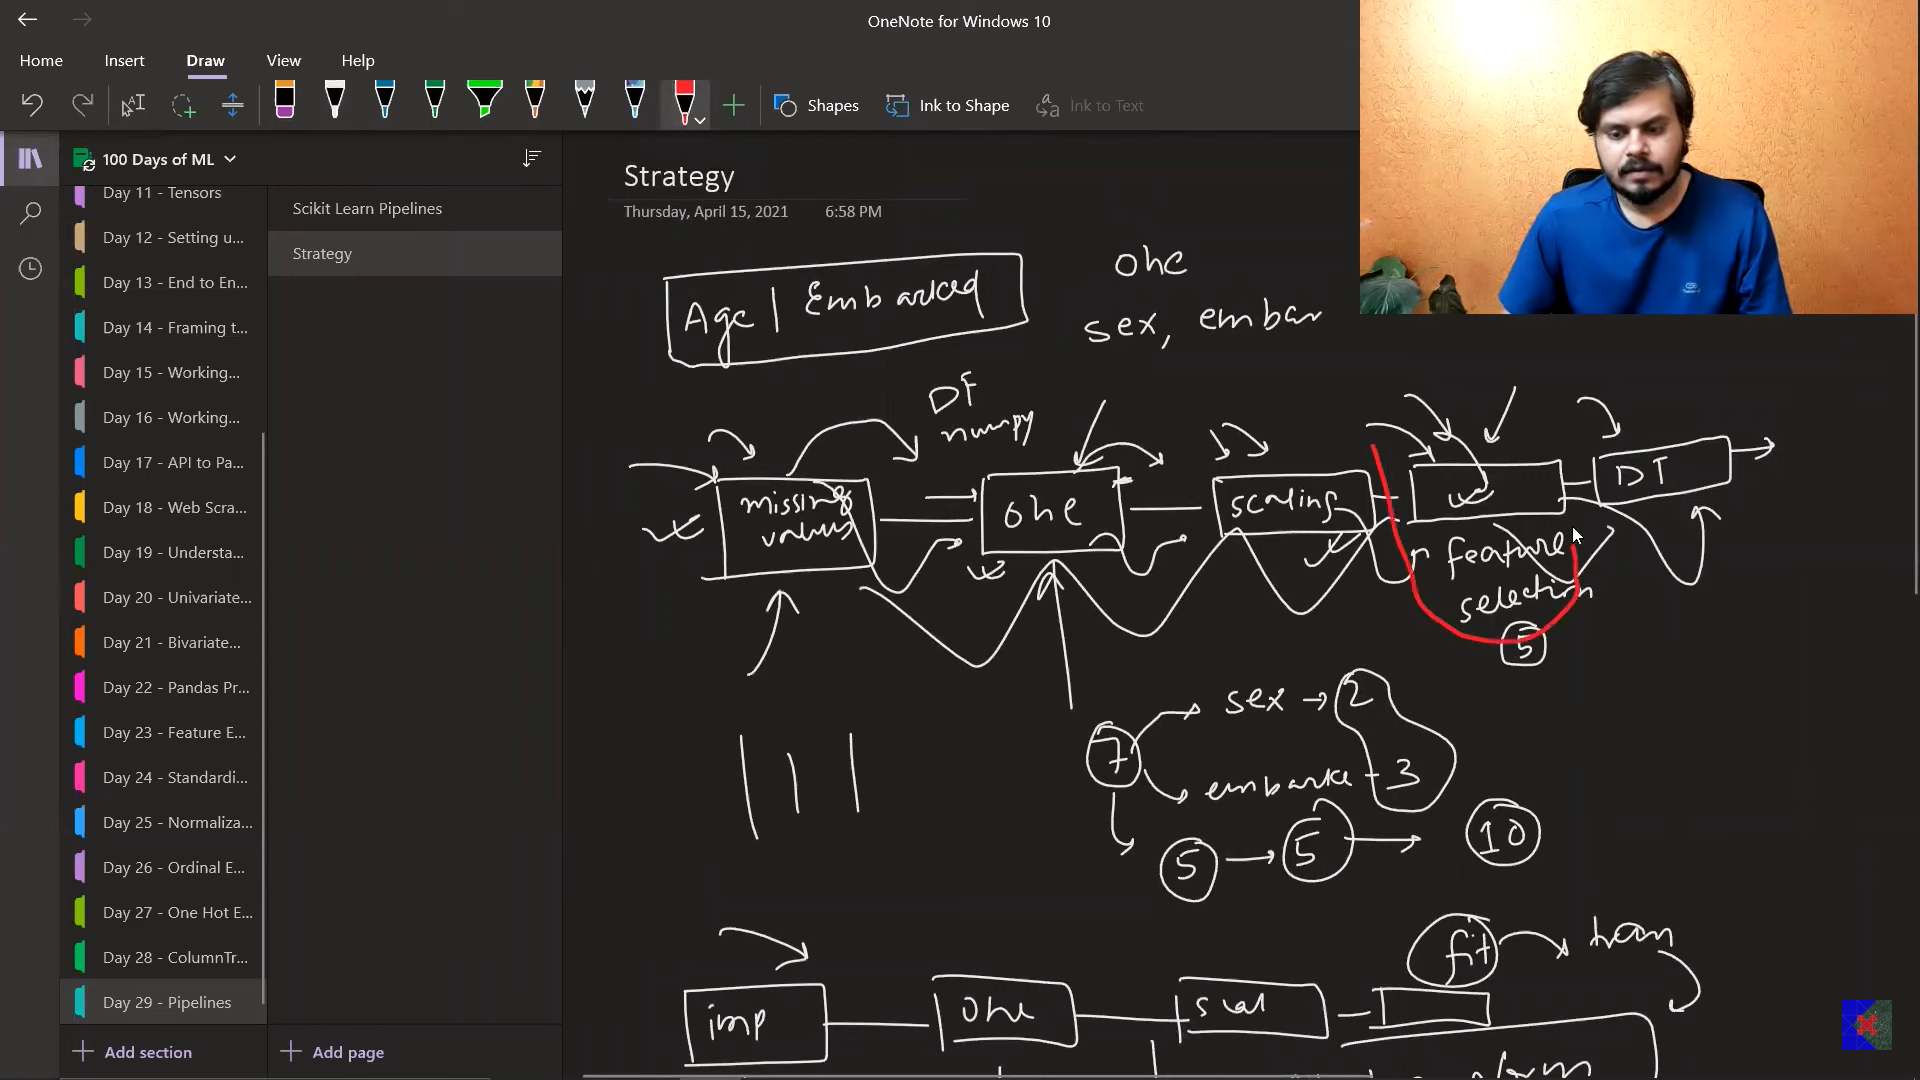 OneNote for Windows 10
Home Insert Draw View Help
Shapes Ink to Shape Ink to Text
100 Days of ML
Day 11 - Tensors
Day 12 - Setting u...
Day 13 - End to En...
Day 14 - Framing t...
Day 15 - Working...
Day 16 - Working...
Day 17 - API to Pa...
Day 18 - Web Scra...
Day 19 - Understa...
Day 20 - Univariate...
Day 21 - Bivariate...
Day 22 - Pandas Pr...
Day 23 - Feature E...
Day 24 - Standardi...
Day 25 - Normaliza...
Day 26 - Ordinal E...
Day 27 - One Hot E...
Day 28 - ColumnTr...
Day 29 - Pipelines
Add section
Scikit Learn Pipelines
Strategy
Add page
Strategy
Thursday, April 15, 2021 6:58 PM
Age | Embarked
ohe
sex, embar
DF
numpy
missing
values
ohe
scaling
DT
feature
selection
5
7
sex → 2
embarke - 3
5 → 5 → 10
fit tran
imp ohe scal